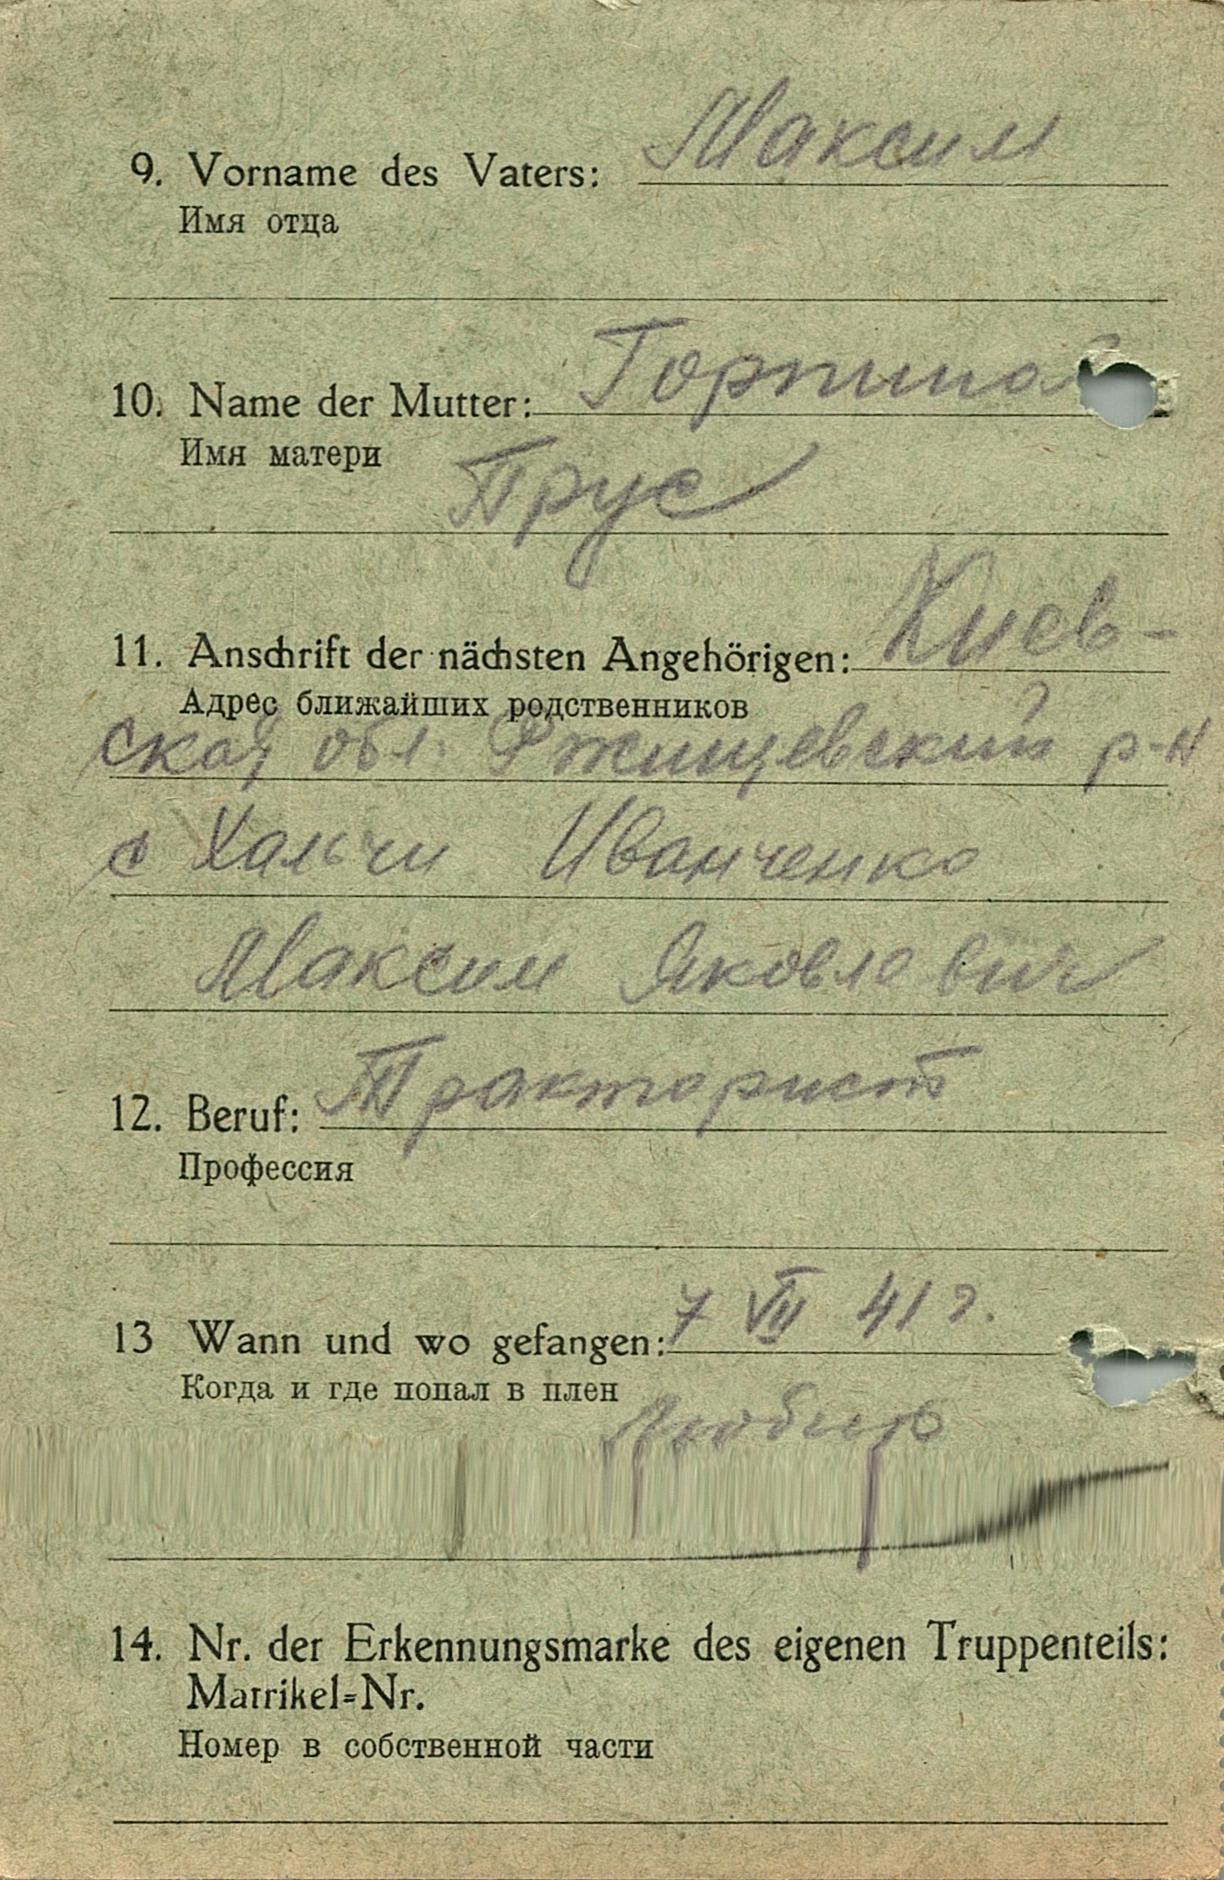 9. Vorname des Vaters: Максим
Имя отца
10. Name der Mutter: Горпина
Имя матери Прус
11. Anschrift der nächsten Angehörigen: Киев-
Адрес ближайших родственников
ская обл. Ржищевский р-н
с Хальчи Иванченко
Максим Яковлевич
12. Beruf: Тракторист
Профессия
13 Wann und wo gefangen: 7 VII 41 г.
Когда и где попал в плен
14. Nr. der Erkennungsmarke des eigenen Truppenteils:
Matrikel=Nr.
Номер в собственной части